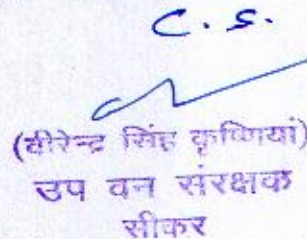 C. S.
(वीरेन्द्र सिंह कृष्णियां)
उप वन संरक्षक
सीकर